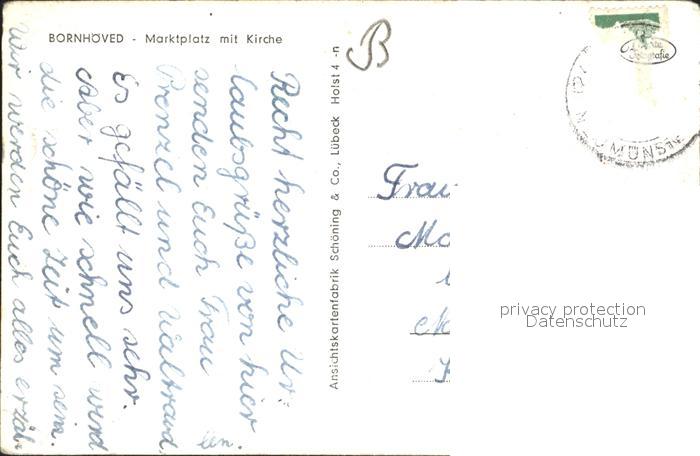 BORNHÖVED - Marktplatz mit Kirche
Recht herzliche Ur:
laubsgrüße von hier
senden Euch Frau
Prenzel und Waltraud.
Es gefällt uns sehr.
Aber wie schnell wird
die schöne Zeit um sein.
Wir werden Euch alles erzäh-
len.
Ansichtskartenfabrik Schöning & Co., Lübeck Holst 4 -n
B
NEUMÜNSTE
Frau
privacy protection
Datenschutz